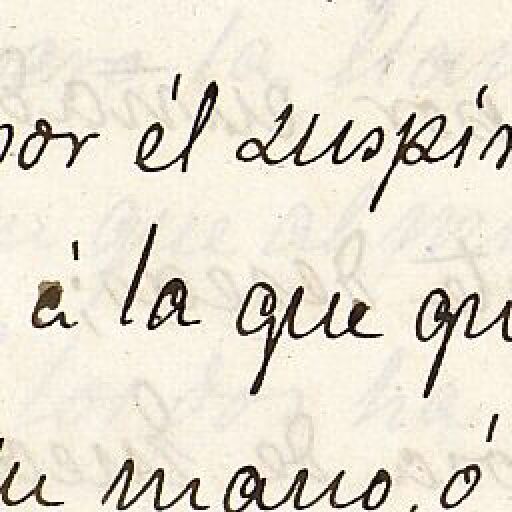 por él suspir
á la que qu
su mano, ó